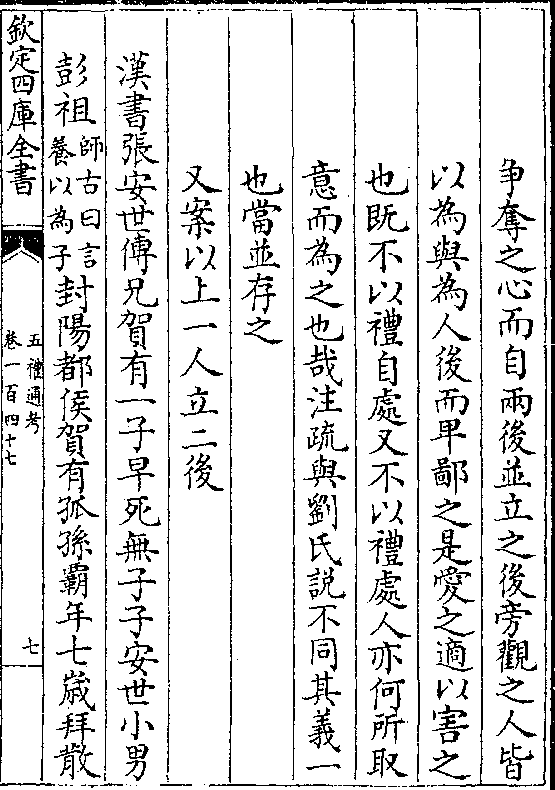 争奪之心而自兩後並立之後旁觀之人皆
以為與為人後而卑鄙之是愛之適以害之
也既不以禮自處又不以禮處人亦何所取
意而為之也哉注疏與劉氏說不同其義一
也當並存之
又案以上一人立二後
漢書張安世傳兄賀有一子早死無子子安世小男
彭祖師古曰言養以為子封陽都侯賀有孤孫霸年七歲拜散
欽定四庫全書
五禮通考
卷一百四十七
七